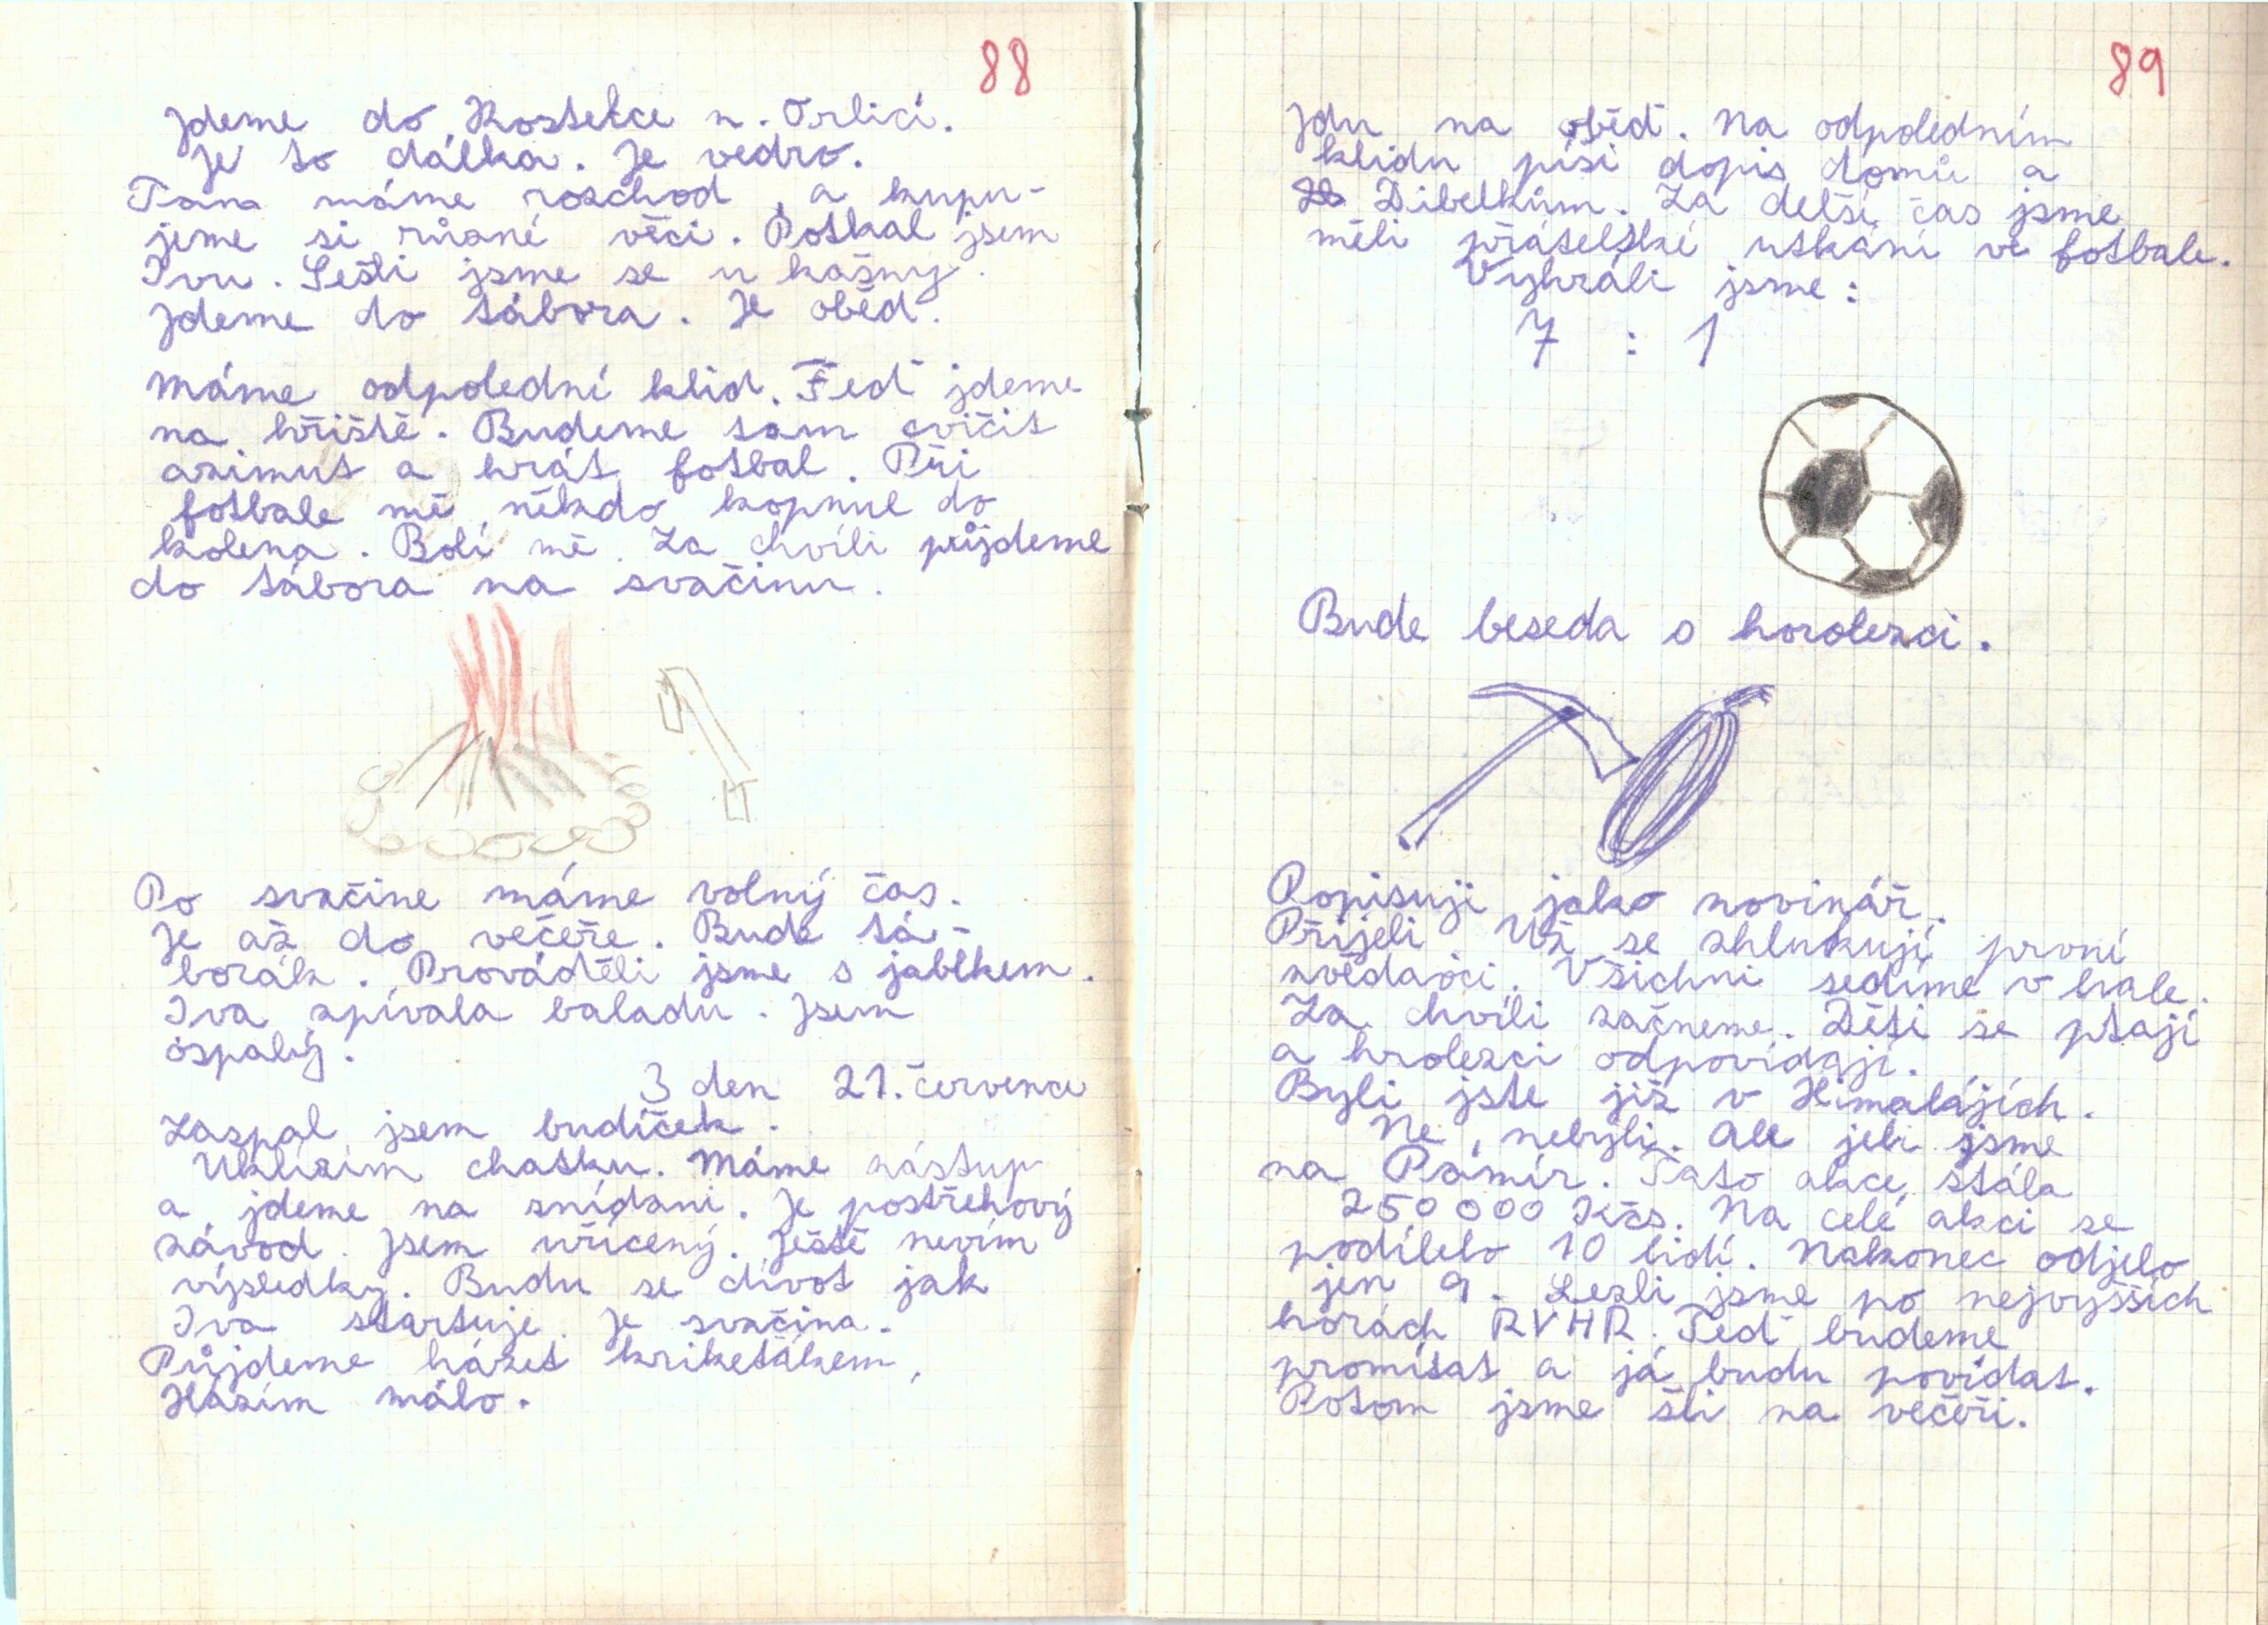 88
Jdeme do Kostelce n. Orlicí.
Je to dálka. Je vedro.
Tam máme rozchod, a kupu-
jeme si různé věci. Potkal jsem
Ivu. Sešli jsme se u kašny.
Jdeme do tábora. Je oběd.
Máme odpolední klid. Teď jdeme
na hřiště. Budeme tam cvičit
azimut a hrát fotbal. Při
fotbale mě někdo kopnul do
kolena. Bolí mě. Za chvíli půjdeme
do tábora na svačinu.
Po svačine máme volný čas.
Je až do večeře. Bude tá-
borák. Prováděli jsme s jablkem.
Iva zpívala baladu. Jsem
ospalý.
3 den 21. července
Zaspal jsem budíček.
Uklízím chatku. Máme nástup
a jdeme na snídani. Je postřehový
závod. Jsem uřícený. Ještě nevím
výsledky. Budu se dívat jak
Iva startuje. Je svačina.
Půjdeme házet kriketákem,
Házím málo.
89
Jdu na oběd. Na odpoledním
klidu píši dopis domů a
Dibelkům. Za delší čas jsme
měli přátelské utkání ve fotbale.
Vyhráli jsme:
7 : 1
Bude beseda o horolezci.
Popisuji jako novinář.
Přijeli Už se shlukují první
zvědavci. Všichni sedíme v hale.
Za chvíli začneme. Děti se ptají
a hrolezci odpovídají.
Byli jste již v Himalájích.
Ne, nebyli. Ale jeli jsme
na Pamír. Tato akce stála
250 000 Kčs. Na celé akci se
podílelo 10 lidí. Nakonec odjelo
jen 9. Lezli jsme po nejvyšších
horách RVHP. Teď budeme
promítat a já budu povídat.
Potom jsme šli na večeři.